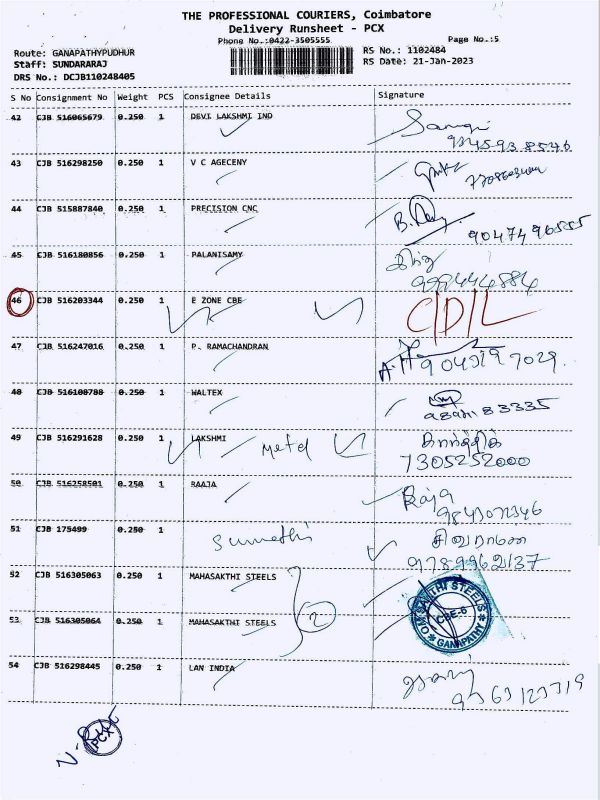 THE PROFESSIONAL COURIERS, Coimbatore
Delivery Runsheet - PCX
Phone No.:0422-3505555
Page No.:5
Route: GANAPATHYPUDHUR
Staff: SUNDARARAJ
DRS No.: DCJB110248405
RS No.: 1102484
RS Date: 21-Jan-2023
S No Consignment No Weight PCS Consignee Details Signature
42 CJB 516065679 0.250 1 DEVI LAKSHMI IND
43 CJB 516298250 0.250 1 V C AGECENY
44 CJB 515887840 0.250 1 PRECISION CNC
9047496555
45 CJB 516180856 0.250 1 PALANISAMY
46 CJB 516203344 0.250 1 E ZONE CBE C/D/L
47 CJB 516247016 0.250 1 P. RAMACHANDRAN
48 CJB 516108788 0.250 1 WALTEX
49 CJB 516291628 0.250 1 LAKSHMI Metd கார்த்திக்
7305252000
50 CJB 516258501 0.250 1 RAAJA Raja
51 CJB 175499 0.250 1 Sumathi
9789962137
52 CJB 516305063 0.250 1 MAHASAKTHI STEELS
2
53 CJB 516305064 0.250 1 MAHASAKTHI STEELS
OM SAKTHI STEELS
CBE-6
GANAPATHY
54 CJB 516298445 0.250 1 LAN INDIA
PCX